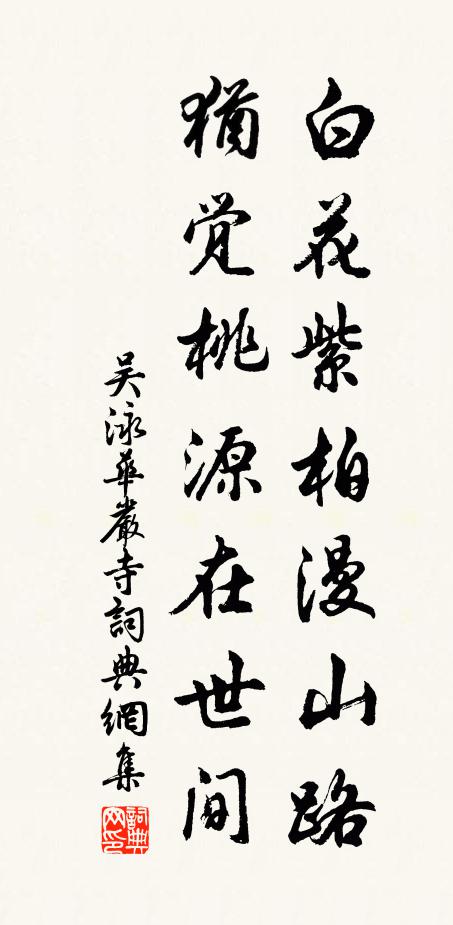 白花紫柏漫山路
猶觉桃源在世间
吴泳華嚴寺詞典網集
詞典网印